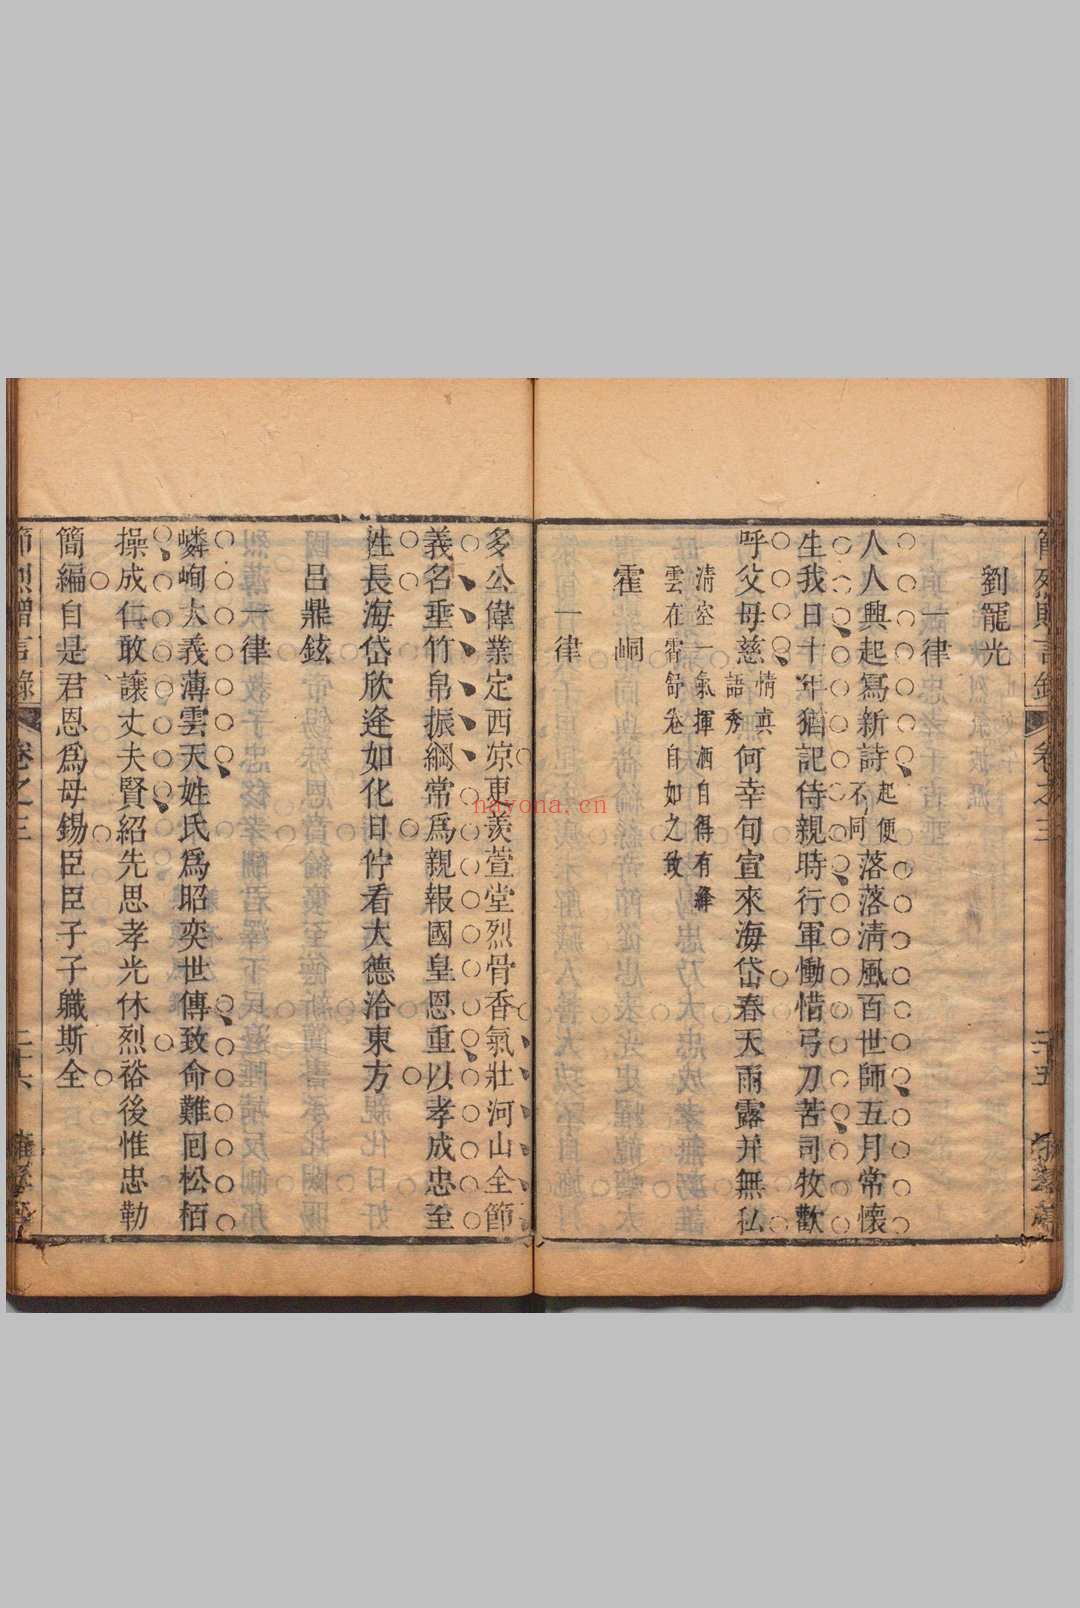 節烈贈言錄 卷之三 二十五
劉寵光
一律
人人興起寫新詩起便不同落落清風百世師五月常懷
生我日十年猶記侍親時行軍慟惜弓刀苦司牧歡
呼父母慈情真語秀何幸旬宣來海岱春天雨露并無私
清空一氣揮洒自得有絳
雲在霄舒卷自如之致
霍峒
一律
多公偉業定西凉東羨萱堂烈骨香氣壯河山全節
義名垂竹帛振綱常爲親報國皇恩重以孝成忠至
性長海岱欣逢如化日佇看大德洽東方
呂鼎鉉
一律
嶙峋大義薄雲天姓氏爲昭奕世傳致命難囘松栢
操成仁敢讓丈夫賢紹先思孝光休烈裕後惟忠勒
簡編自是君恩爲母錫臣臣子子職斯全
節烈贈言錄 卷之三 二十六
nayona.cn